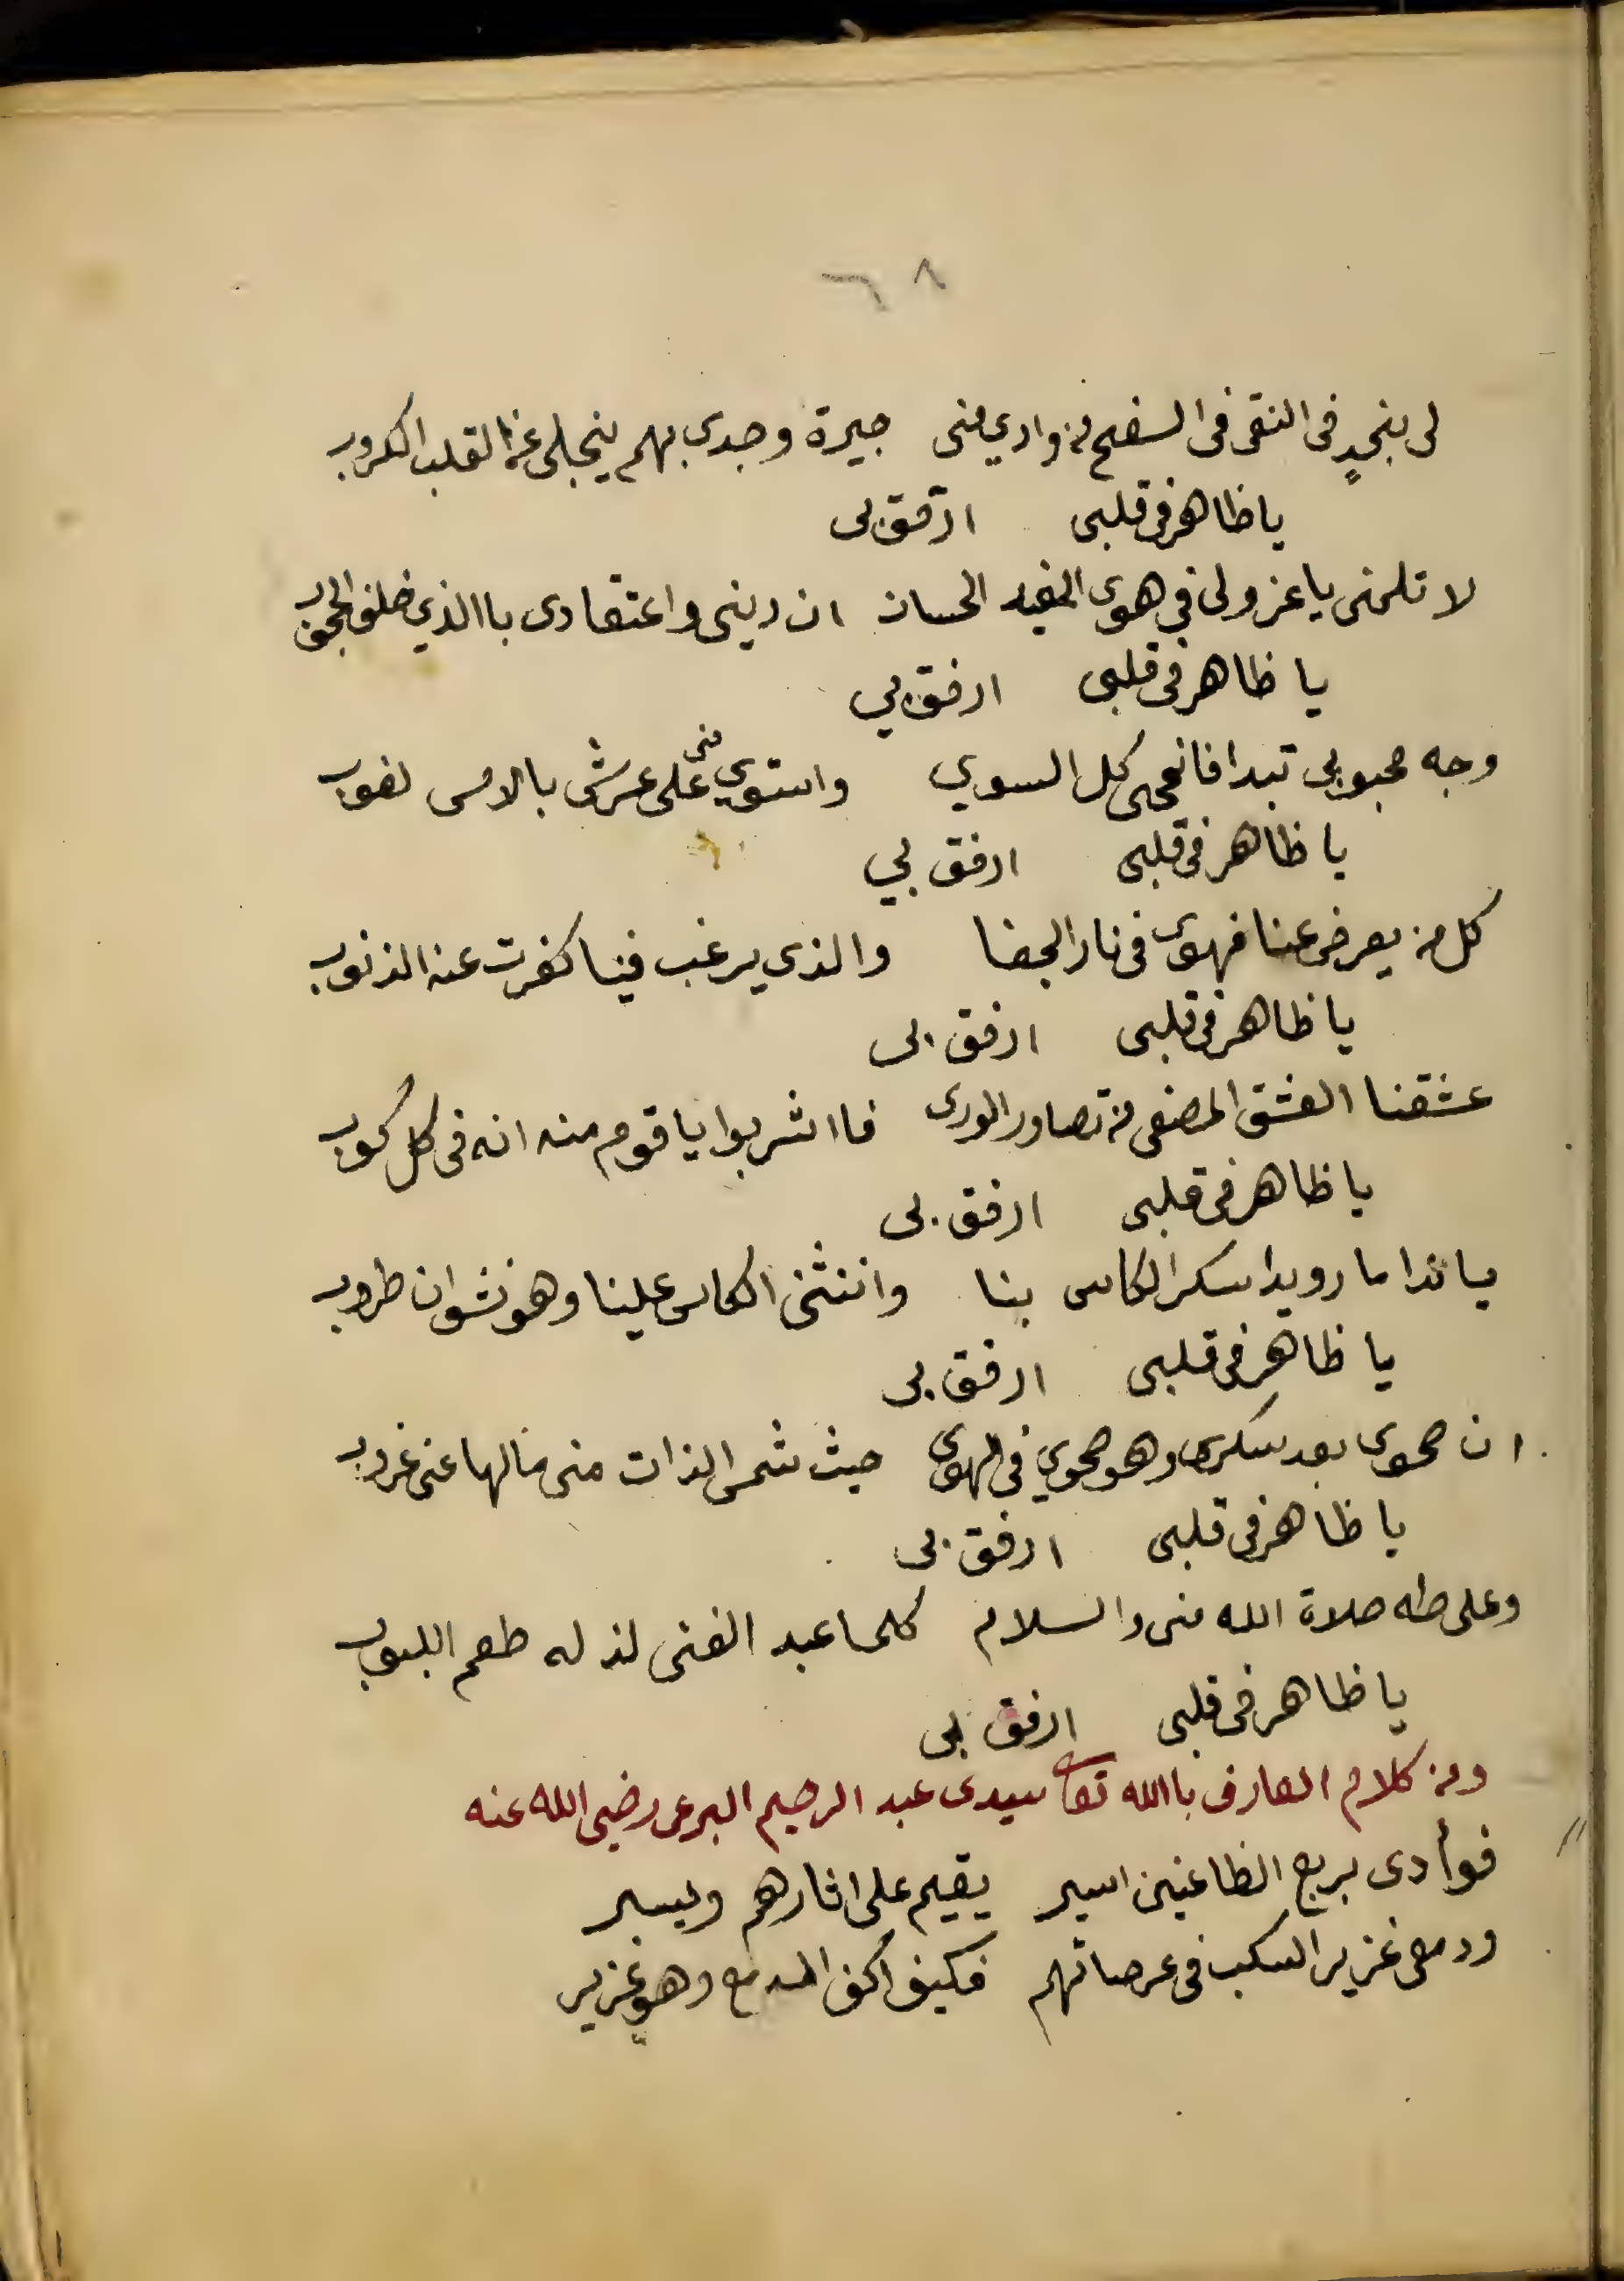 ٦٨
لى بنجدٍ فى النقى فى السفح من وادي منى جيرة وجدى بهم ينجلى عن القلب الكروب
يا ظاهر فى قلبى ارفق بى
لا تلمنى يا عزولى في هوى الغيد الحسان ان دينى واعتقادى باالذي خلف الحجوب
يا ظاهر فى قلبى ارفق بي
وجه محبوبى تبدا فانمحى كل السوي واستوي منى على عرشى بالامس لغوب
يا ظاهر فى قلبى ارفق بي
كل من يعرض عنا فهوى فى نار الجفا والذى يرغب فينا كفرت عنه الذنوب
يا ظاهر فى قلبى ارفق بى
عشقنا العشق المصفى من تصاور الورى فااشربوا يا قوم منه انه فى كل كوب
يا ظاهر فى قلبى ارفق بى
يا نداما رويدا سكر الكاس بنا وانثنى الكاس علينا وهو نشوان طروب
يا ظاهر فى قلبى ارفق بى
ان صحوى بعد سكرى وهو صحوي فى الهوى حيث شمس الذات منى مالها عنى غروب
يا ظاهر فى قلبى ارفق بى
وعلى طه صلاة الله منى والسلام كلما عبد الغنى لذ له طعم اللبوب
يا ظاهر فى قلبى ارفق بى
ومن كلام العارف باالله تعالى سيدى عبد الرحيم البرعى رضى الله عنه
فوأدى بربع الظاعنين اسير يقيم على اثارهم ويسير
ودمعى غزير السكب فى عرصاتهم فكيف اكف الدمع وهو غزير